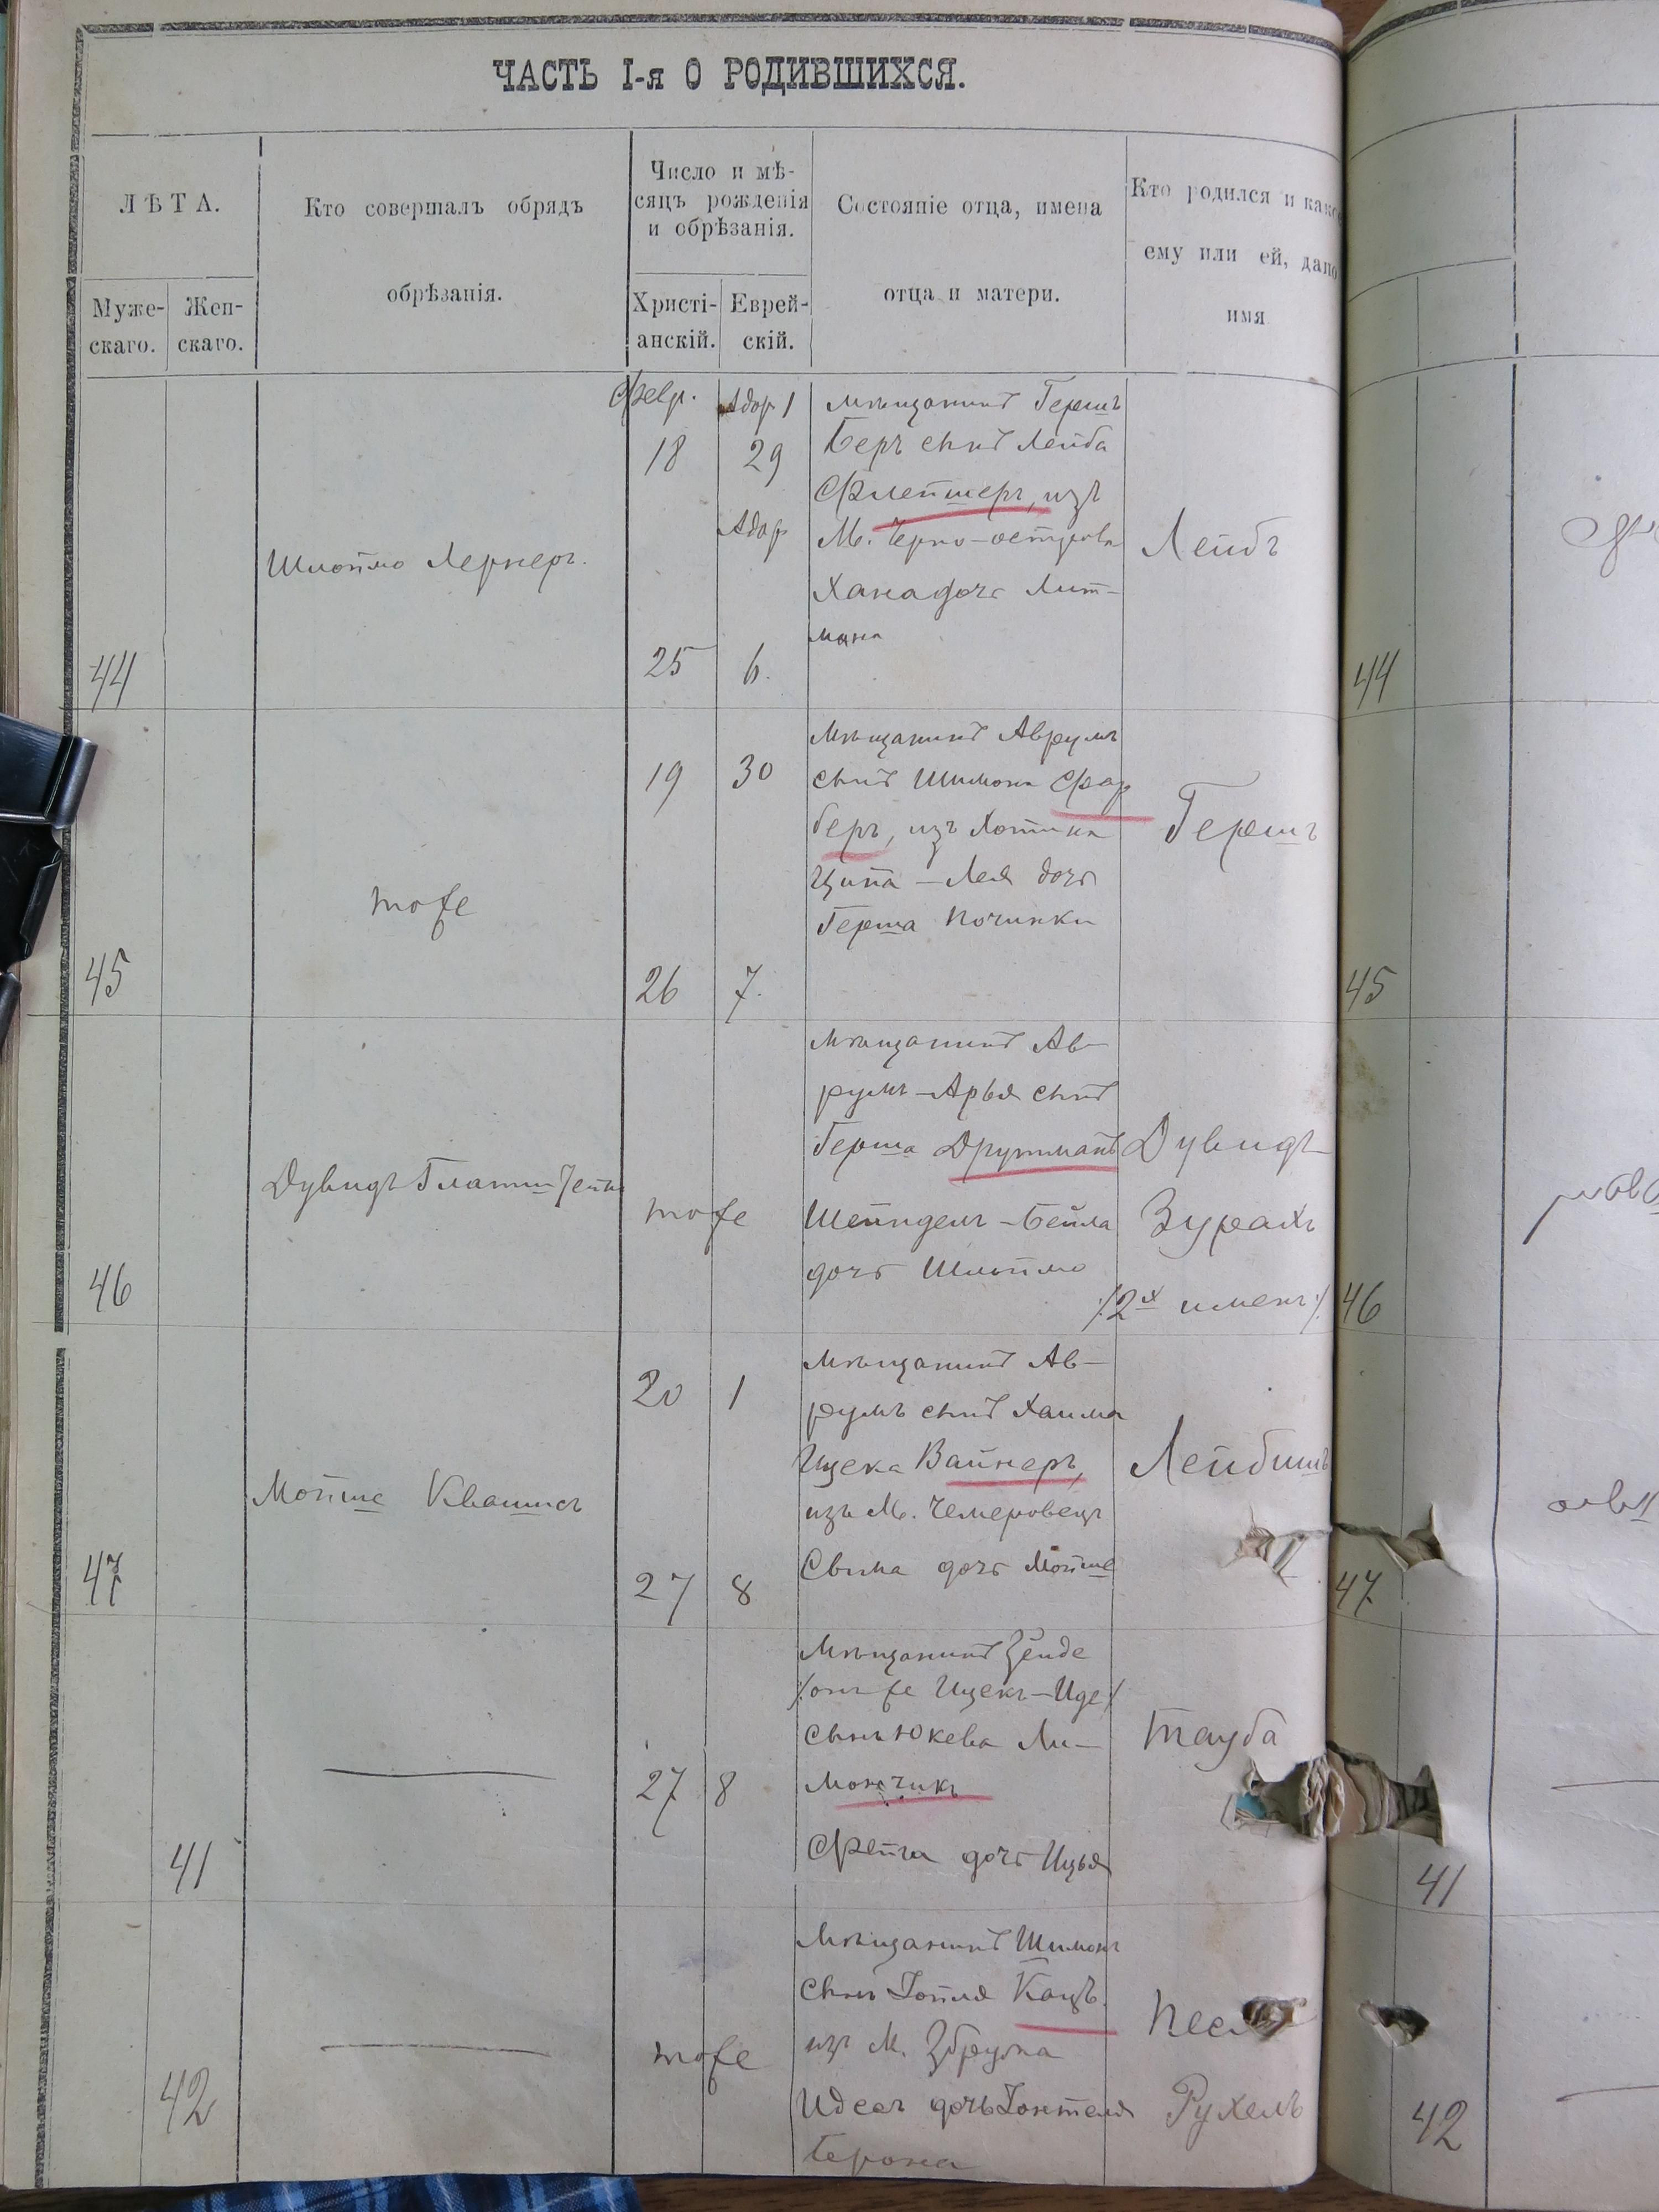 ЧАСТЬ I-я О РОДИВШИХСЯ.
ЛѢТА.
Муже-
скаго.
Жен-
скаго.
Кто совершалъ обрядъ
обрѣзанія.
Число и мѣ-
сяцъ рожденія
и обрѣзанія.
Христі-
анскій.
Еврей-
скій.
Состояніе отца, имена
отца и матери.
Кто родился и како
ему или ей, дано
имя
44
Шлойма Лернеръ.
Февр.
18
25
Адор 1
29
Адор
6.
мѣщанинъ Гершъ
Беръ сынъ Лейба
Флейшеръ, изъ
М. Черно-острова
Хана дочь Лит-
мана
Лейбъ
44
45
тоже
19
26
30
7.
мѣщанинъ Аврумъ
сынъ Шимона Фар
беръ, изъ Хотина
Ципа-Лея дочь
Герша Починки
Гершъ
45
46
Дувидъ
тоже
мѣщанинъ Ав-
румъ-Арья сынъ
Герша Друтманъ
Шейндель-Бейла
дочь Шлоймо
Дувидъ
Зурахъ
/2х именъ/
46
47
Мойше Квашисъ
20
27
1
8
мѣщанинъ Ав-
румъ сынъ Хаима
Ицека Вайнеръ,
изъ М. Чемеровецъ
Свима дочь Мойше
Лейбишъ
47
41
27
8
мѣщанинъ Зейде
/онъ же Ицекъ-Иде/
сынъ Юкева Ли-
мончикъ
Фейга дочь Ицья
Тауба
41
42
тоже
мѣщанинъ Шимонъ
сынъ Іойля Кацъ.
изъ М. Збружа
Идесъ дочь
Берона
Рухель
42